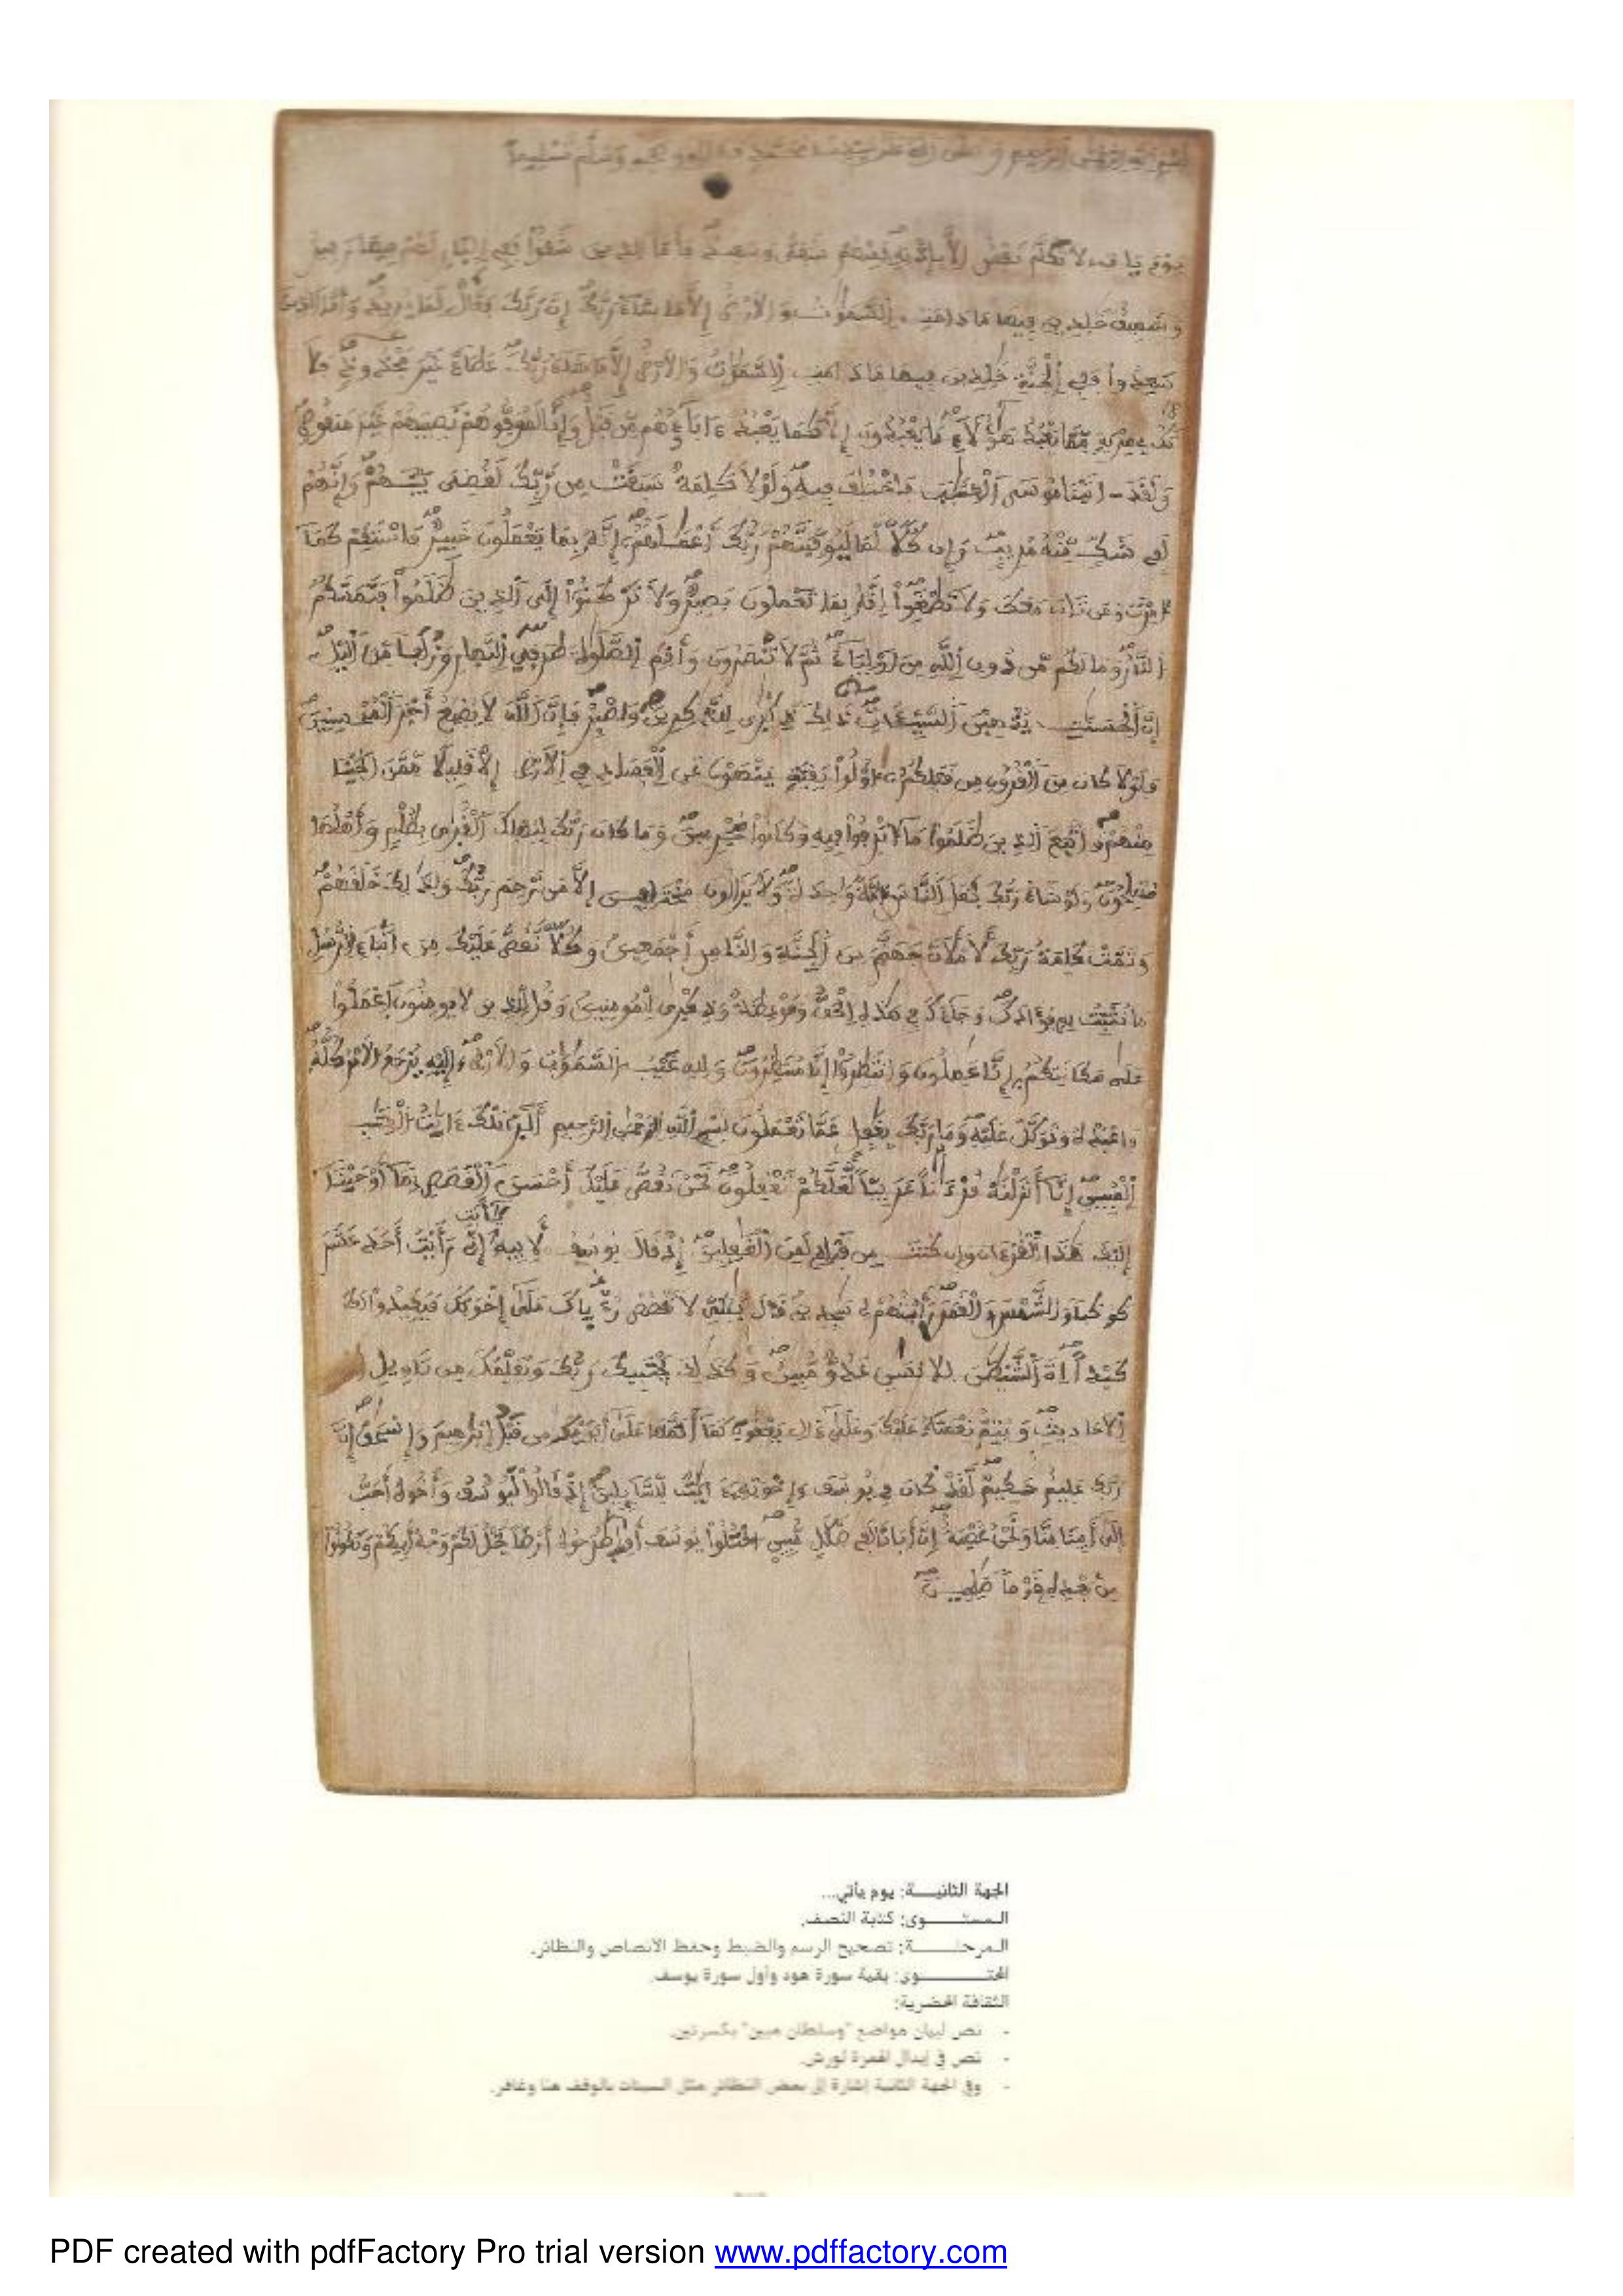 بسم الله الرحمن الرحيم وصلى الله على سيدنا محمد وآله وصحبه وسلم تسليما
يوم يات لا تكلم نفس إلا بإذنه فمنهم شقي وسعيد فأما الذين شقوا ففي النار لهم فيها زفير
وشهيق خلدين فيها ما دامت السموت والارض إلا ما شاء ربك إن ربك فعال لما يريد وأما الذين
سعدوا ففي الجنة خلدين فيها ما دامت السموت والارض إلا ما شاء ربك عطاء غير مجذوذ فلا
تك في مرية مما يعبد هؤلاء ما يعبدون إلا كما يعبد ءاباؤهم من قبل وإنا لموفوهم نصيبهم غير منقوص
ولقد اتينا موسى الكتب فاختلف فيه ولولا كلمة سبقت من ربك لقضي بينهم وإنهم
لفي شك منه مريب وإن كلا لما ليوفينهم ربك أعملهم إنه بما يعملون خبير فاستقم كما
أمرت ومن تاب معك ولا تطغوا إنه بما تعملون بصير ولا تركنوا إلى الذين ظلموا فتمسكم
النار وما لكم من دون الله من أولياء ثم لا تنصرون وأقم الصلوة طرفي النهار وزلفا من اليل
إن الحسنت يذهبن السيئات ذلك ذكرى للذكرين واصبر فإن الله لا يضيع أجر المحسنين
فلولا كان من القرون من قبلكم أولوا بقية ينهون عن الفساد في الارض إلا قليلا ممن انجينا
منهم واتبع الذين ظلموا ما أترفوا فيه وكانوا مجرمين وما كان ربك ليهلك القرى بظلم وأهلها
مصلحون ولو شاء ربك لجعل الناس أمة وحدة ولا يزالون مختلفين إلا من رحم ربك ولذلك خلقهم
وتمت كلمة ربك لأملأن جهنم من الجنة والناس أجمعين وكلا نقص عليك من أنباء الرسل
ما نثبت به فؤادك وجاءك في هذه الحق وموعظة وذكرى للمومنين وقل للذين لا يومنون اعملوا
على مكانتكم إنا عملون وانتظروا إنا منتظرون ولله غيب السموت والارض وإليه يرجع الامر كله
فاعبده وتوكل عليه وما ربك بغفل عما تعملون بسم الله الرحمن الرحيم ألر تلك ءايت الكتب
المبين إنا أنزلنه قرءنا عربيا لعلكم تعقلون نحن نقص عليك أحسن القصص بما أوحينا
إليك هذا القرءان وإن كنت من قبله لمن الغفلين إذ قال يوسف لأبيه يأبت إني رأيت أحد عشر
كوكبا والشمس والقمر رأيتهم لي سجدين قال يبني لا تقصص رءياك على إخوتك فيكيدوا لك
كيدا إن الشيطن للانسن عدو مبين وكذلك يجتبيك ربك ويعلمك من تاويل
الاحاديث ويتم نعمته عليك وعلى ءال يعقوب كما أتمها على أبويك من قبل إبرهيم وإسحق إن
ربك عليم حكيم لقد كان في يوسف وإخوته ءايت للسائلين إذ قالوا ليوسف وأخوه أحب
إلى أبينا منا ونحن عصبة إن أبانا لفي ضلل مبين اقتلوا يوسف أو اطرحوه أرضا يخل لكم وجه أبيكم وتكونوا
من بعده قوما صلحين
الجهة الثانيـــة: يوم يأتي...
المستـــوى: كتابة النصف.
المرحلـــة: تصحيح الرسم والضبط وحفظ الأنصاص والنظائر.
المحتـــوى: بقية سورة هود وأول سورة يوسف.
الثقافة الحضرية:
- نص لبيان مواضع "وسلطان مبين" بكسرتين.
- نص في إبدال الهمزة لورش.
- وفي الجهة الثانية إشارة إلى بعض النظائر مثل السيئات بالوقف هنا وغافر.
PDF created with pdfFactory Pro trial version www.pdffactory.com